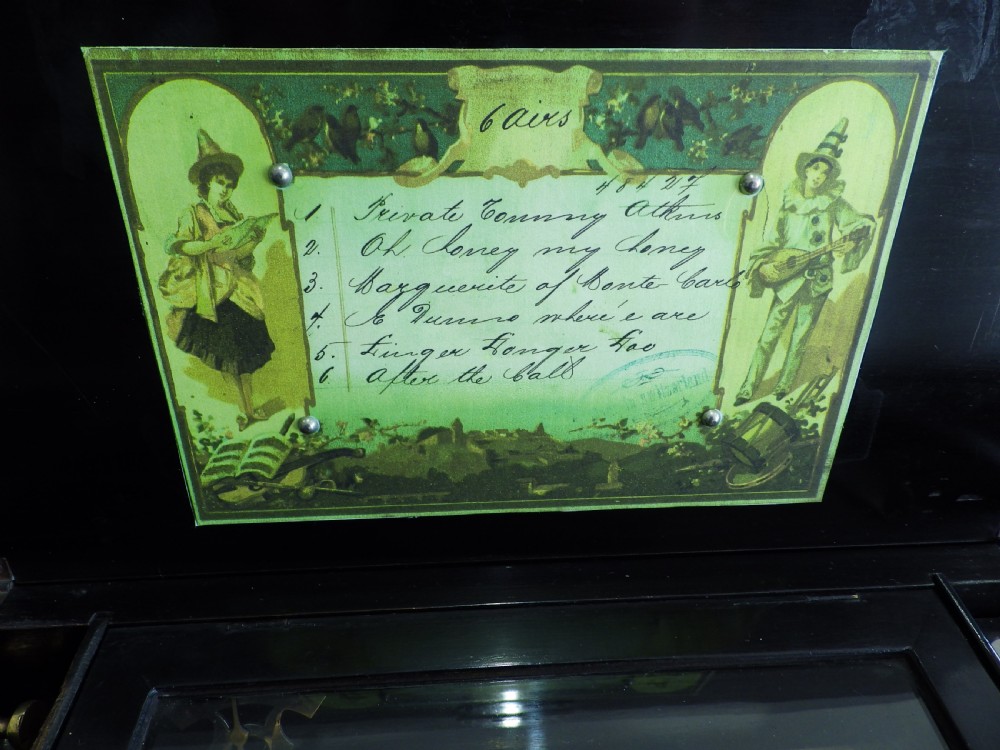 6 Airs
48427
1 Private Tommy Atkins
2. Oh honey my honey
3. Marguerite of Monte Carlo
4. E Dunno where'e are
5. Linger Longer Loo
6 After the Ball